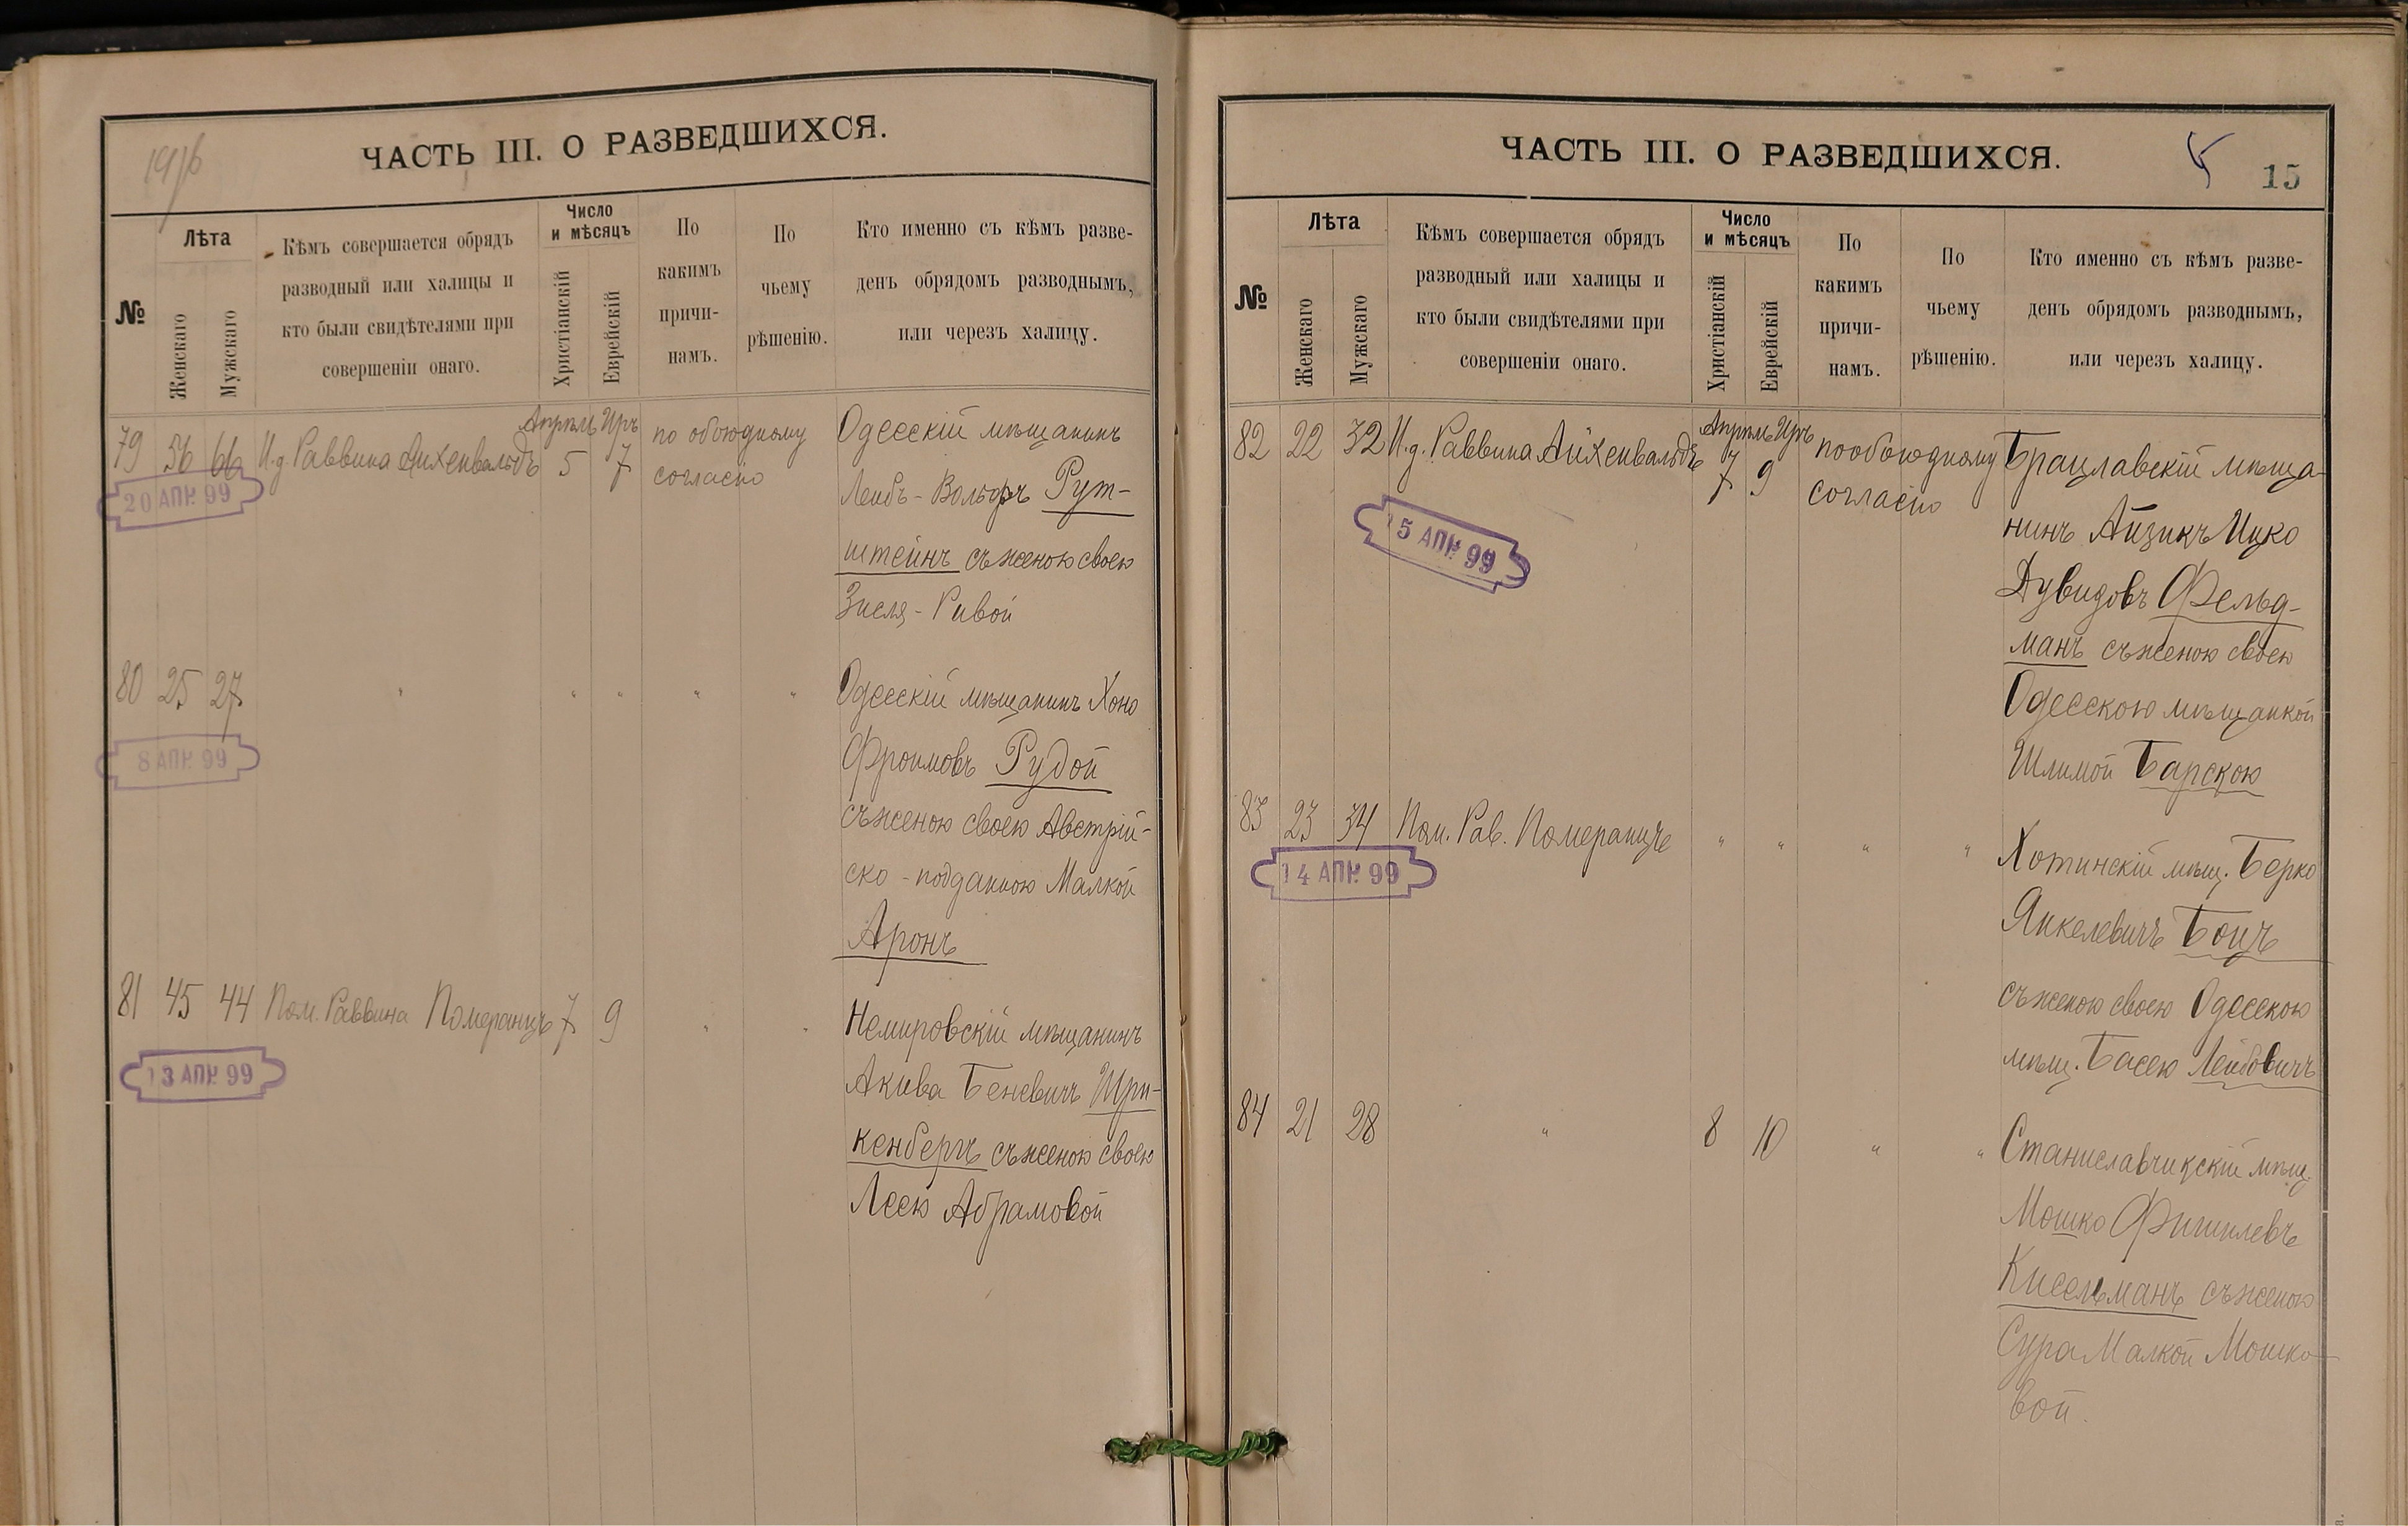 1916
ЧАСТЬ III. О РАЗВЕДШИХСЯ.
№
Лѣта
Женскаго
Мужскаго
Кѣмъ совершается обрядъ
разводный или халицы и
кто были свидѣтелями при
совершеніи онаго.
Число
и мѣсяцъ
Христіанскій
Еврейскій
По
какимъ
причи-
намъ.
По
чьему
рѣшенію.
Кто именно съ кѣмъ разве-
денъ обрядомъ разводнымъ,
или черезъ халицу.
Апрѣль Иръ
79 56 66 И.д. Раввина Айхенвальдъ 5 7 по обоюдному
согласію
20 АПР. 99
Одесскій мѣщанинъ
Лейбъ-Вольфъ Рут-
штейнъ съ женою своею
Зисля-Ривой
80 25 27 " " " " "
8 АПР. 99
Одесскій мѣщанинъ Хоно
Фроимовъ Рудой
съ женою своею Австрій-
ско-подданною Малкой
Аронъ
81 45 44 Пом. Раввина Померанцъ 7 9 " "
13 АПР. 99
Немировскій мѣщанинъ
Акива Беневичъ
кенбергъ съ женою своею
Леею Абрамовой
ЧАСТЬ III. О РАЗВЕДШИХСЯ.
15
№
Лѣта
Женскаго
Мужскаго
Кѣмъ совершается обрядъ
разводный или халицы и
кто были свидѣтелями при
совершеніи онаго.
Число
и мѣсяцъ
Христіанскій
Еврейскій
По
какимъ
причи-
намъ.
По
чьему
рѣшенію.
Кто именно съ кѣмъ разве-
денъ обрядомъ разводнымъ,
или черезъ халицу.
Апрѣль Иръ
82 22 32 И.д. Раввина Айхенвальдъ 7 9 по обоюдному
согласію
15 АПР. 99
Брацлавскій мѣща-
нинъ Айзикъ Ицко
Дувидовъ Фельд-
манъ съ женою своею
Одесскою мѣщанкой
Шлимой Барскою
83 23 34 Пом. Рав. Померанцъ " " " "
14 АПР. 99
Хотинскій мѣщ. Берко
Янкелевичъ Боцъ
съ женою своею Одесскою
мѣщ. Басею Лейбовичъ
84 21 28 " 8 10 " "
Станиславчикскій мѣщ.
Мошко Фишилевъ
Кисельманъ съ женою
Сура Малкой Мошко-
вой.